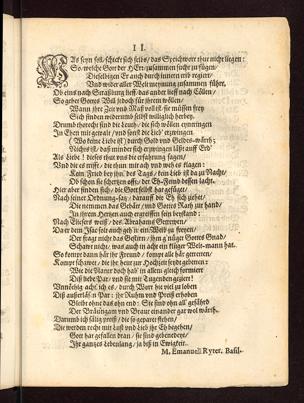 II.
WAs seyn soll, schickt sich selbs, das Sprichwort thut nicht liegen:
So, welche Gott der HErr zusammen sucht zu fügen,
Dieselbigen Er auch durch innern trib regiert,
Und wider aller Welt meynung zusammen führt.
Ob eins nach Straßburg hefft, das ander lieff nach Cöllen,
So gehet Gottes Will jedoch für ihrem wöllen,
Wann ihre Zeit und Maß voll ist, sie müssen frey
Sich finden widerumb selbst willigklich herbey.
Drumb thorecht sind die Leuth, die sich wöllen eynzwingen
In Ehen mit gewalt, und sonst die Lieb' erzwingen
( Wo keine Liebe ist ) durch Gold und Geldes-wärth;
Nichts ist, daß minder sich erzwingen läßt auff Erd'
Als Liebe! dieses thut uns die erfahrung sagen,
Und die es trifft, die thun mit ach und weh es klagen:
Kein Fried bey ihn' des Tags, kein Lieb ist da zu Nacht,
Ob schon sie schertzen offt, der Eh-Feind dessen lacht.
Hier aber finden sich, die Gott selbst hat gefüget,
Nach seiner Ordnung-satz, darauß die Eh sich ziehet,
Die nemmen das Gebätt, und Gottes Raht zur hand,
In ihrem Hertzen auch ergriffen sein beystand:
Nach Elieses weiß, des Abrahams Getrewten,
Da er dem Isac seit auch geh'n ein Weib zu freyen,
Der fragt nicht das Gestirn, ihm g'nüget Gottes Gnad,
Schawt nicht, was auch in acht ein kluger Welt-mann hat.
So kompt dann här ihr Freund, kompt alle här getretten,
Kompt schawet, die ihr heut zur Hochzeit seydt gebetten:
Wie die Natur doch hab' in allem gleich formiert
Diß liebe Par, und sie mit Tugenden geziert!
Unnöhtig acht' ich es, durch Wort hie viel zu loben
Diß außerläs'n Par: ihr Ruhm und Preiß erhoben
Bleibt ohne das ohn end: Sie sind ohn all gefährd
Der Bräutgam und Braut einander gar wol wärth.
Darumb ich sälig preiß, die so gepaaret stehen,
Die werden recht mit Lust und Lieb ihr Eh begehen,
Gott hat gefallen dran, sie sind gebenedeyt,
Ihr gantzes Lebenlang, ja biß in Ewigkeit.
M. Emanuell Ryter, Basil-